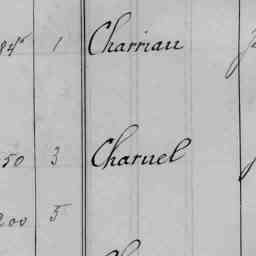 845 1 Charriau
50 3 Charuel
200 5